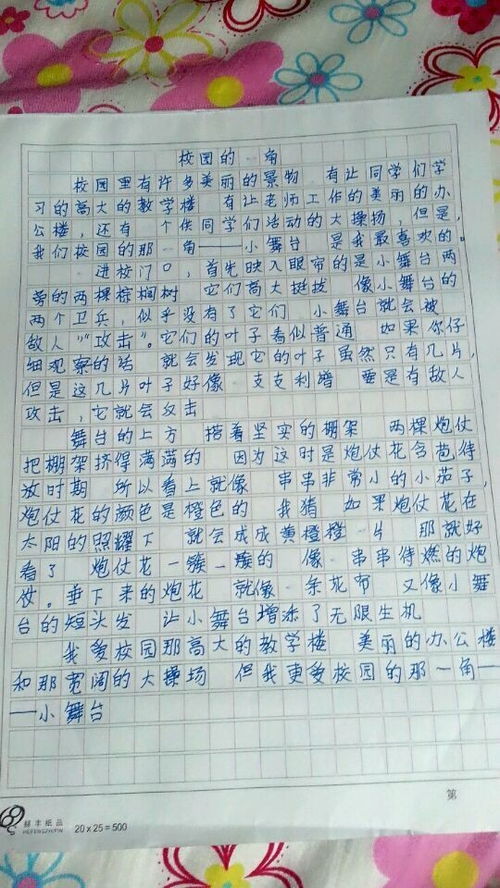 校园的一角
校园里有许多美丽的景物 有让同学们学
习的高大的教学楼 有让老师工作的美丽的办
公楼，还有一个供同学们活动的大操场，但是，
我们校园的那一角——小舞台 是我最喜欢的。
一进校门口，首先映入眼帘的是小舞台两
旁的两棵棕榈树 它们高大挺拔 像小舞台的
两个卫兵，似乎没有了它们 小舞台就会被
敌人“攻击”。它们的叶子看似普通 如果你仔
细观察的话 就会发现它的叶子虽然只有几片，
但是这几片叶子好像一支支利 要是有敌人
攻击，它就会攻击
舞台的上方 搭着坚实的棚架 两棵炮仗
把棚架挤得满满的 因为这时是炮仗花含苞待
放时期 所以看上就像一串串非常小的小茄子，
炮仗花的颜色是橙色的 我猜 如果炮仗花在
太阳的照耀下 就会成成黄橙橙一片 那就好
看了 炮仗花一簇一簇的 像一串串待燃的炮
仗。垂下来的炮花 就像一条花布 又像小舞
台的短头发 让小舞台增添了无限生机
我爱校园那高大的教学楼 美丽的办公楼
和那宽阔的大操场 但我更爱校园的那一角—
—小舞台
第
纸品
20 x 25 = 500